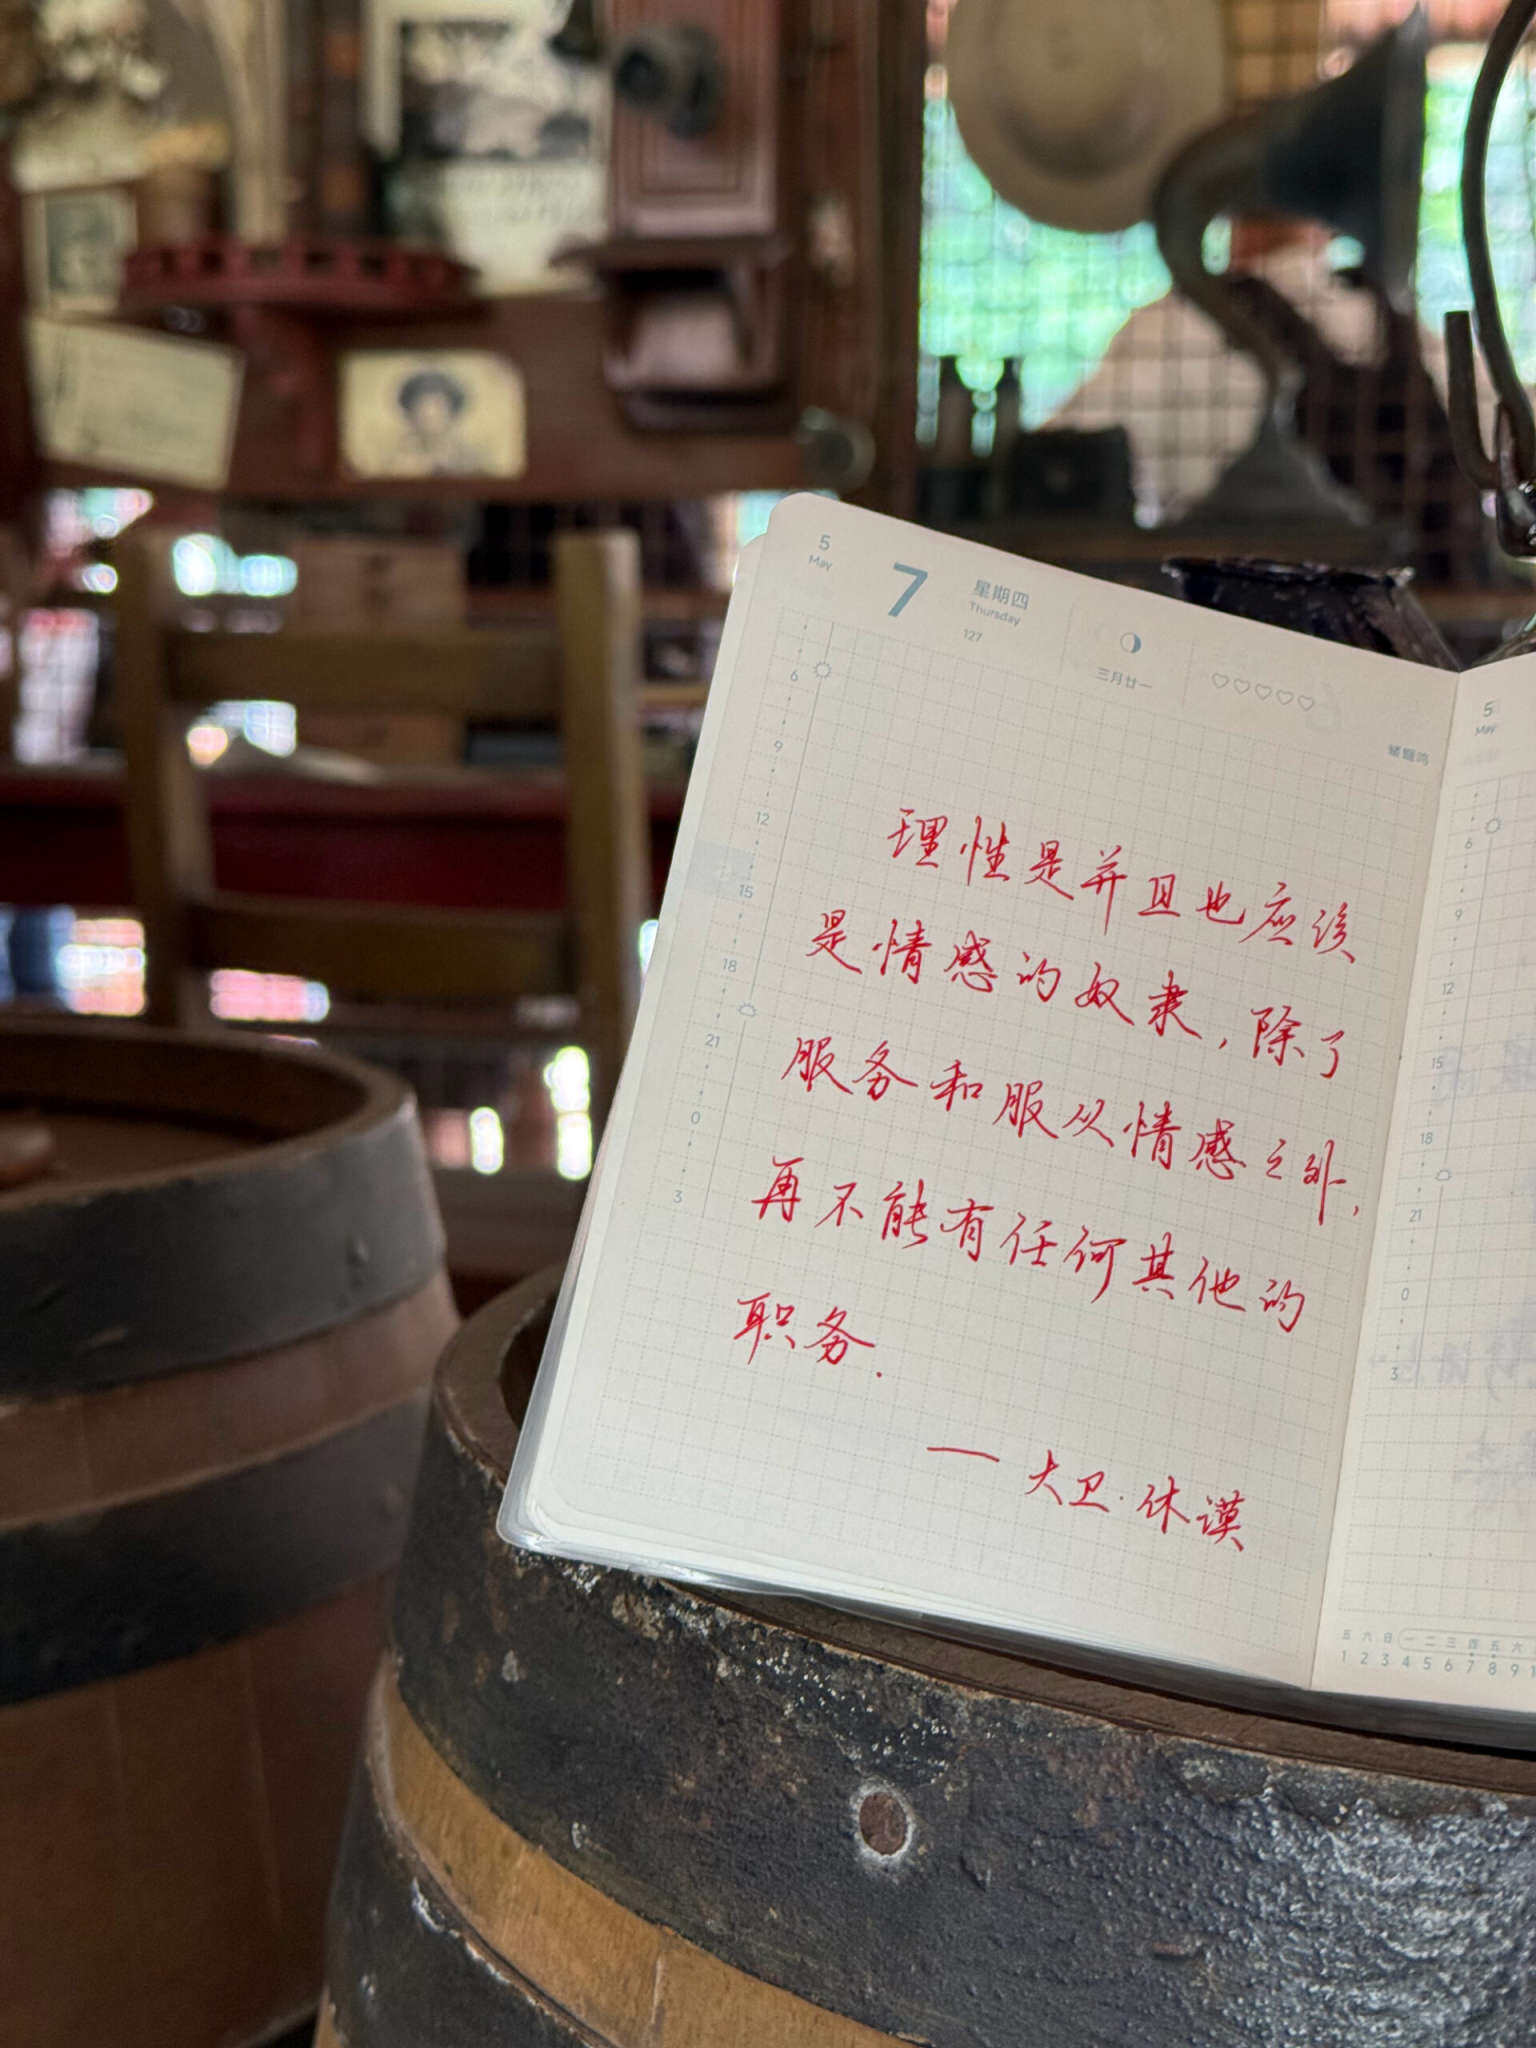 5
May
7
星期四
Thursday
127
三月廿一
蝼蝈鸣
6
9
12
15
18
21
0
3
理性是并且也应该
是情感的奴隶,除了
服务和服从情感之外,
再不能有任何其他的
职务.
— 大卫·休谟
5
May
6
9
12
15
18
21
0
3
五 六 日 一 二 三 四 五 六
1 2 3 4 5 6 7 8 9